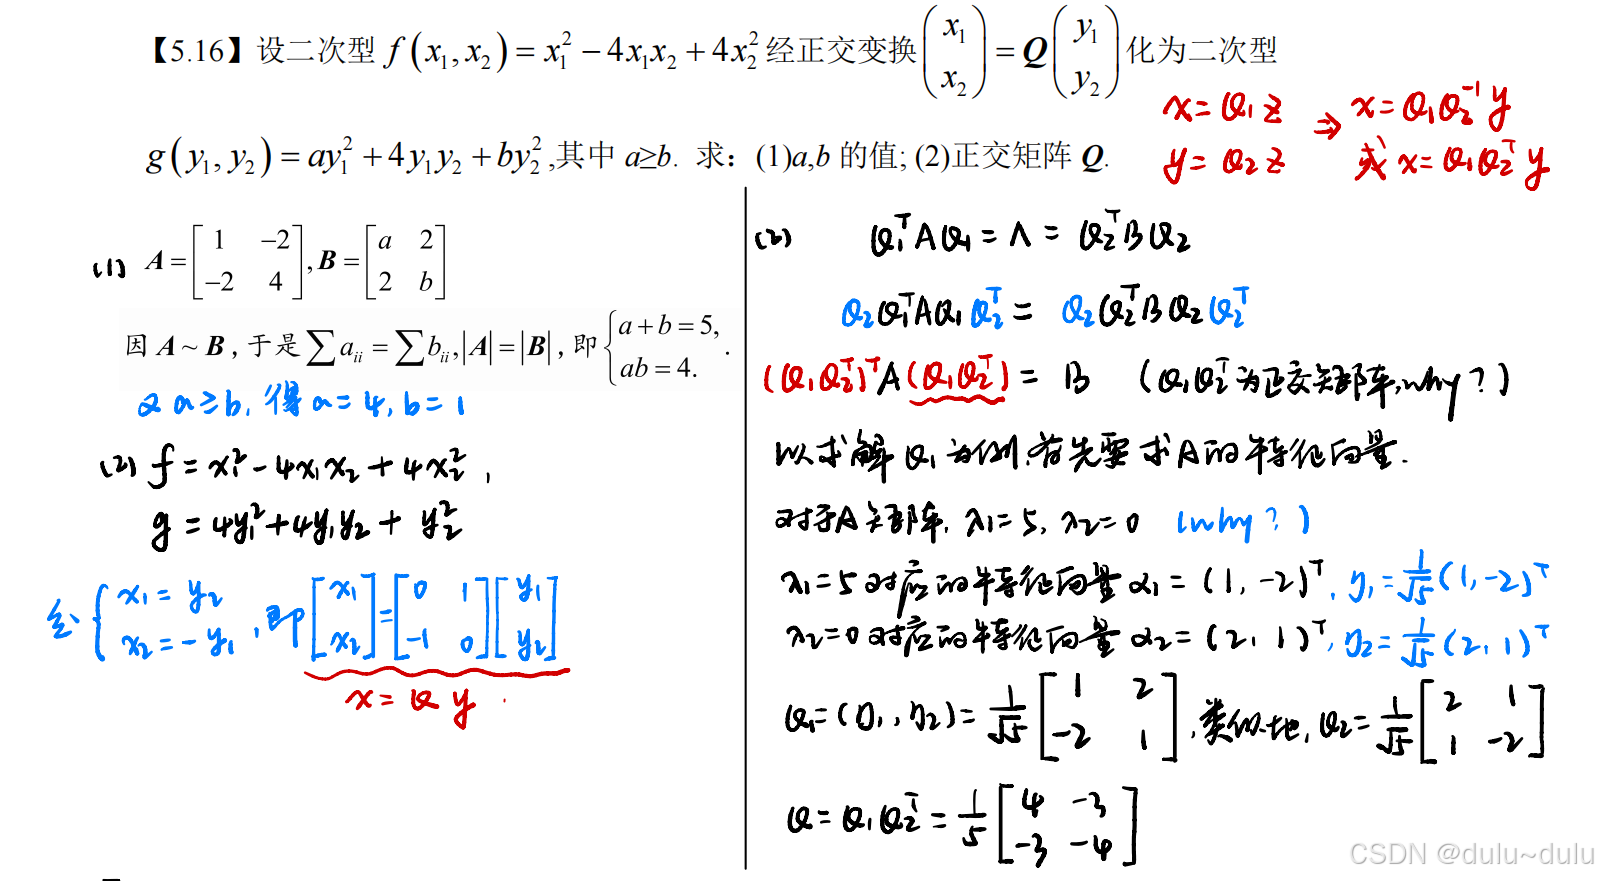 【5.16】设二次型 f(x₁,x₂)=x₁²−4x₁x₂+4x₂² 经正交变换 (x₁ x₂) = Q (y₁ y₂) 化为二次型
g(y₁,y₂)=ay₁²+4y₁y₂+by₂²,其中 a≥b. 求：(1)a,b 的值; (2)正交矩阵 Q.
x=Q₁z ⇒ x=Q₁Q₂⁻¹y
y=Q₂z 或 x=Q₁Q₂ᵀy
(1) A=[1 −2; −2 4], B=[a 2; 2 b]
因 A~B, 于是 ∑aᵢᵢ=∑bᵢᵢ,|A|=|B|, 即 {a+b=5, ab=4.
又 a≥b, 得 a=4, b=1
(2) f=x₁²−4x₁x₂+4x₂²,
g=4y₁²+4y₁y₂+y₂²
令 {x₁=y₂ x₂=−y₁, 即 [x₁ x₂]=[0 1; −1 0][y₁ y₂]
x=Qy
(2) Q₁ᵀAQ₁=Λ=Q₂ᵀBQ₂
Q₂Q₁ᵀAQ₁Q₂ᵀ=Q₂Q₂ᵀBQ₂Q₂ᵀ
(Q₁Q₂ᵀ)ᵀA(Q₁Q₂ᵀ)=B (Q₁Q₂ᵀ为正交矩阵,why?)
以求解Q₁为例,首先要求A的特征向量.
对于A矩阵, λ₁=5, λ₂=0 (why?)
λ₁=5对应的特征向量α₁=(1,−2)ᵀ, η₁=1/√5(1,−2)ᵀ
λ₂=0对应的特征向量α₂=(2,1)ᵀ, η₂=1/√5(2,1)ᵀ
Q₁=(η₁,η₂)=1/√5[1 2; −2 1], 类似地, Q₂=1/√5[2 1; 1 −2]
Q=Q₁Q₂ᵀ=1/5[4 −3; −3 −4]
CSDN @dulu~dulu